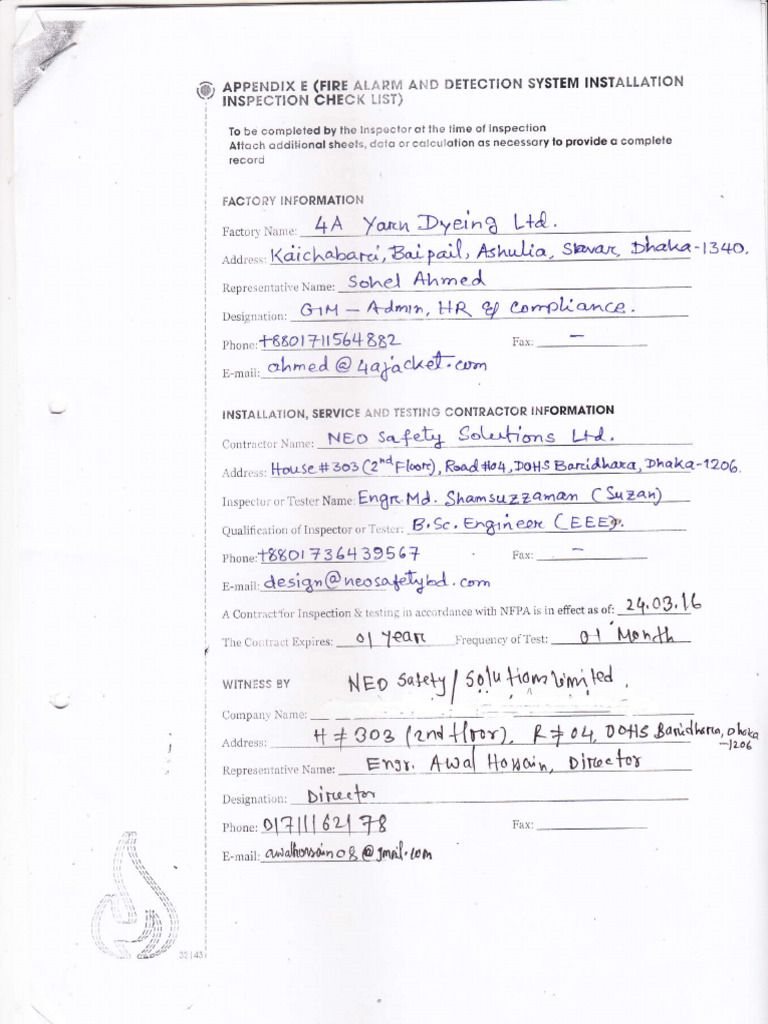 APPENDIX E (FIRE ALARM AND DETECTION SYSTEM INSTALLATION
INSPECTION CHECK LIST)
To be completed by the Inspector at the time of inspection
Attach additional sheets, data or calculation as necessary to provide a complete
record
FACTORY INFORMATION
Factory Name: 4A Yarn Dyeing Ltd.
Address: Kaichabari, Baipail, Ashulia, Savar, Dhaka-1340.
Representative Name: Sohel Ahmed
Designation: GM - Admin, HR & Compliance.
Phone: +8801711564882 Fax: -
E-mail: ahmed@4ajacket.com
INSTALLATION, SERVICE AND TESTING CONTRACTOR INFORMATION
Contractor Name: NEO Safety Solutions Ltd.
Address: House # 303 (2nd Floor), Road #04, DOHS Baridhara, Dhaka-1206.
Inspector or Tester Name: Engr. Md. Shamsuzzaman (Suzan)
Qualification of Inspector or Tester: B.Sc. Engineer (EEE).
Phone: +8801736439567 Fax: -
E-mail: design@neosafetybd.com
A Contract for Inspection & testing in accordance with NFPA is in effect as of: 24.03.16
The Contract Expires: 01 year Frequency of Test: 01 Month
WITNESS BY NEO Safety Solutions Limited.
Company Name:
Address: H # 303 (2nd floor), R # 04, DOHS Baridhara, Dhaka
-1206
Representative Name: Engr. Awal Hossain, Director
Designation: Director
Phone: 01711162178 Fax:
E-mail: awalhossain08@gmail.com
32|43